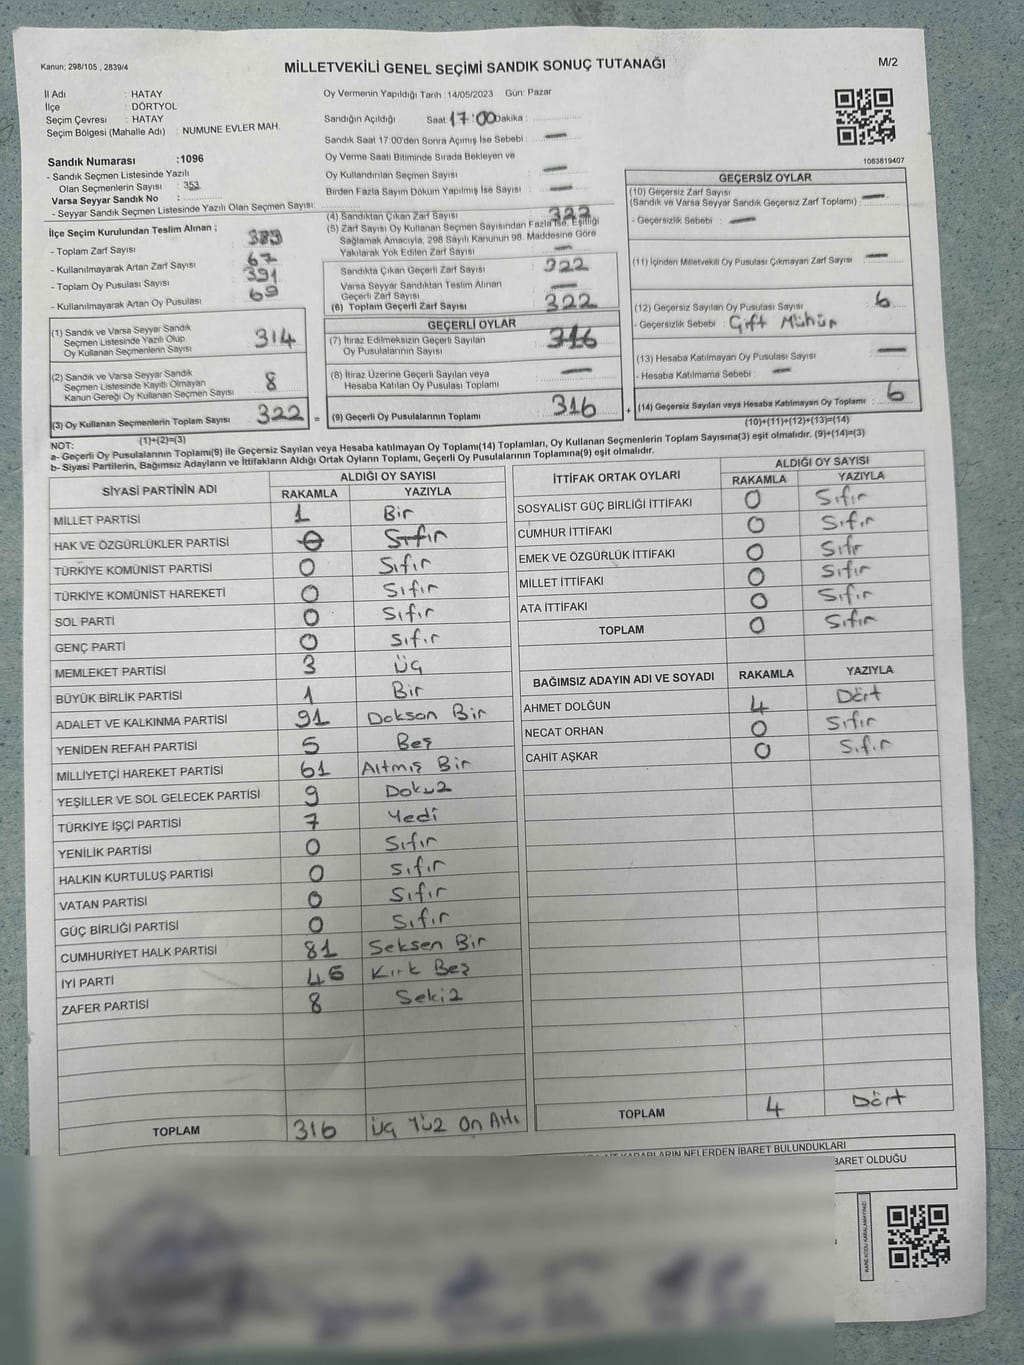 Kanun; 298/105 , 2839/4
MİLLETVEKİLİ GENEL SEÇİMİ SANDIK SONUÇ TUTANAĞI
M/2
İl Adı : HATAY
İlçe : DÖRTYOL
Seçim Çevresi : HATAY
Seçim Bölgesi (Mahalle Adı) : NUMUNE EVLER MAH.
Oy Vermenin Yapıldığı Tarih :14/05/2023 Gün: Pazar
Sandığın Açıldığı Saat:17:00 Dakika :
Sandık Saat 17:00'den Sonra Açılmış İse Sebebi : —
Oy Verme Saati Bitiminde Sırada Bekleyen ve
Oy Kullandırılan Seçmen Sayısı : —
Birden Fazla Sayım Döküm Yapılmış İse Sayısı : —
1083819407
Sandık Numarası :1096
- Sandık Seçmen Listesinde Yazılı
Olan Seçmenlerin Sayısı : 353
Varsa Seyyar Sandık No :
- Seyyar Sandık Seçmen Listesinde Yazılı Olan Seçmen Sayısı:
İlçe Seçim Kurulundan Teslim Alınan ;
- Toplam Zarf Sayısı : 389
- Kullanılmayarak Artan Zarf Sayısı : 67
- Toplam Oy Pusulası Sayısı : 391
- Kullanılmayarak Artan Oy Pusulası : 69
(1) Sandık ve Varsa Seyyar Sandık
Seçmen Listesinde Yazılı Olup
Oy Kullanan Seçmenlerin Sayısı : 314
(2) Sandık ve Varsa Seyyar Sandık
Seçmen Listesinde Kayıtlı Olmayan
Kanun Gereği Oy Kullanan Seçmen Sayısı : 8
(3) Oy Kullanan Seçmenlerin Toplam Sayısı : 322 =
(1)+(2)=(3)
(4) Sandıktan Çıkan Zarf Sayısı : 322
(5) Zarf Sayısı Oy Kullanan Seçmen Sayısından Fazla İse, Eşitliği
Sağlamak Amacıyla, 298 Sayılı Kanunun 98. Maddesine Göre
Yakılarak Yok Edilen Zarf Sayısı : —
Sandıkta Çıkan Geçerli Zarf Sayısı : 322
Varsa Seyyar Sandıktan Teslim Alınan
Geçerli Zarf Sayısı : —
(6) Toplam Geçerli Zarf Sayısı : 322
GEÇERLİ OYLAR
(7) İtiraz Edilmeksizin Geçerli Sayılan
Oy Pusulalarının Sayısı : 316
(8) İtiraz Üzerine Geçerli Sayılan veya
Hesaba Katılan Oy Pusulası Toplamı : —
(9) Geçerli Oy Pusulalarının Toplamı : 316 +
GEÇERSİZ OYLAR
(10) Geçersiz Zarf Sayısı
(Sandık ve Varsa Seyyar Sandık Geçersiz Zarf Toplamı) : —
- Geçersizlik Sebebi : —
(11) İçinden Milletvekili Oy Pusulası Çıkmayan Zarf Sayısı : —
(12) Geçersiz Sayılan Oy Pusulası Sayısı : 6
- Geçersizlik Sebebi : Çift Mühür
(13) Hesaba Katılmayan Oy Pusulası Sayısı : —
- Hesaba Katılmama Sebebi : —
(14) Geçersiz Sayılan veya Hesaba Katılmayan Oy Toplamı : 6
(10)+(11)+(12)+(13)=(14)
NOT:
a- Geçerli Oy Pusulalarının Toplamı(9) ile Geçersiz Sayılan veya Hesaba katılmayan Oy Toplamı(14) Toplamları, Oy Kullanan Seçmenlerin Toplam Sayısına(3) eşit olmalıdır. (9)+(14)=(3)
b- Siyasi Partilerin, Bağımsız Adayların ve İttifakların Aldığı Ortak Oyların Toplamı, Geçerli Oy Pusulalarının Toplamına(9) eşit olmalıdır.
SİYASİ PARTİNİN ADI ALDIĞI OY SAYISI
RAKAMLA YAZIYLA
MİLLET PARTİSİ 1 Bir
HAK VE ÖZGÜRLÜKLER PARTİSİ 0 Sıfır
TÜRKİYE KOMÜNİST PARTİSİ 0 Sıfır
TÜRKİYE KOMÜNİST HAREKETİ 0 Sıfır
SOL PARTİ 0 Sıfır
GENÇ PARTİ 0 Sıfır
MEMLEKET PARTİSİ 3 Üç
BÜYÜK BİRLİK PARTİSİ 1 Bir
ADALET VE KALKINMA PARTİSİ 91 Doksan Bir
YENİDEN REFAH PARTİSİ 5 Beş
MİLLİYETÇİ HAREKET PARTİSİ 61 Altmış Bir
YEŞİLLER VE SOL GELECEK PARTİSİ 9 Dokuz
TÜRKİYE İŞÇİ PARTİSİ 7 Yedi
YENİLİK PARTİSİ 0 Sıfır
HALKIN KURTULUŞ PARTİSİ 0 Sıfır
VATAN PARTİSİ 0 Sıfır
GÜÇ BİRLİĞİ PARTİSİ 0 Sıfır
CUMHURİYET HALK PARTİSİ 81 Seksen Bir
İYİ PARTİ 45 Kırk Beş
ZAFER PARTİSİ 8 Sekiz
TOPLAM 316 Üç Yüz On Altı
İTTİFAK ORTAK OYLARI ALDIĞI OY SAYISI
RAKAMLA YAZIYLA
SOSYALİST GÜÇ BİRLİĞİ İTTİFAKI 0 Sıfır
CUMHUR İTTİFAKI 0 Sıfır
EMEK VE ÖZGÜRLÜK İTTİFAKI 0 Sıfr
MİLLET İTTİFAKI 0 Sıfır
ATA İTTİFAKI 0 Sıfır
TOPLAM 0 Sıfır
BAĞIMSIZ ADAYIN ADI VE SOYADI RAKAMLA YAZIYLA
AHMET DOLĞUN 4 Dört
NECAT ORHAN 0 Sıfır
CAHİT AŞKAR 0 Sıfır
TOPLAM 4 Dört
KARARLARIN NELERDEN İBARET BULUNDUKLARI
BARET OLDUĞU
KARE KODU KARALAMAYINIZ!